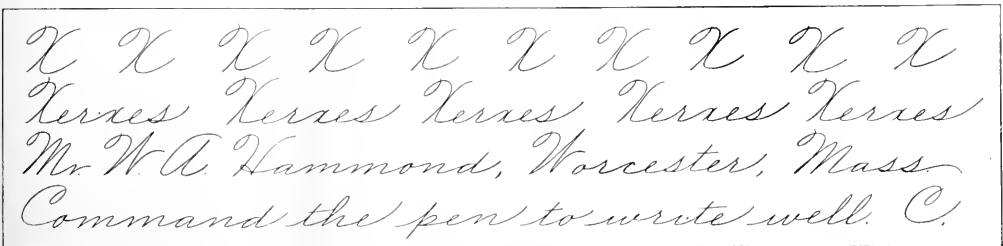 X X X X X X X X X X
Xerxes Xerxes Xerxes Xerxes Xerxes
Mr. W. A. Hammond, Worcester, Mass.
Command the pen to write well. C.